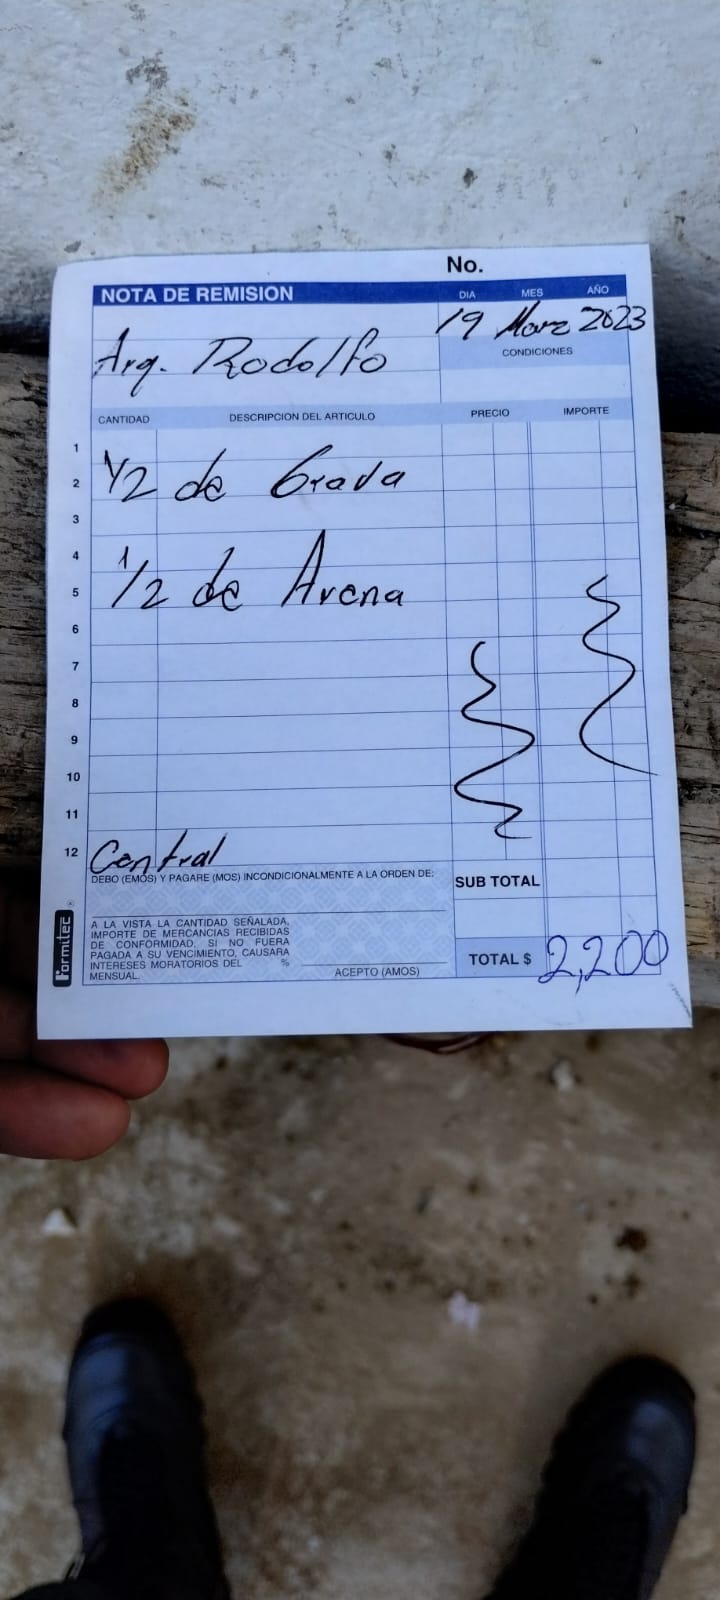 No.
NOTA DE REMISION
DIA MES AÑO
19 Marz 2023
Arq. Rodolfo
CONDICIONES
CANTIDAD DESCRIPCION DEL ARTICULO PRECIO IMPORTE
1
2 1/2 de Grava
3
4
5 1/2 de Arena
6
7
8
9
10
11
12 Central
DEBO (EMOS) Y PAGARE (MOS) INCONDICIONALMENTE A LA ORDEN DE:
SUB TOTAL
A LA VISTA LA CANTIDAD SEÑALADA,
IMPORTE DE MERCANCIAS RECIBIDAS
DE CONFORMIDAD, SI NO FUERA
PAGADA A SU VENCIMIENTO, CAUSARA
INTERESES MORATORIOS DEL %
MENSUAL.
ACEPTO (AMOS)
TOTAL $ 2,200
Formitec ®